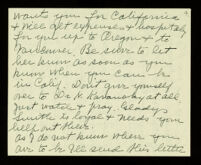 wants you for California
& will get expenses & hospitality
for you up to Oregon & to
Vancouver Be sure to let
her know as soon as you
know when you can be
in Calif. Don't give yourself
over to Dr. K at all
just watch & pray. Gladys
Smith is loyal & needs you
help out there.
As I do not know where you
are to be I'll send this letter